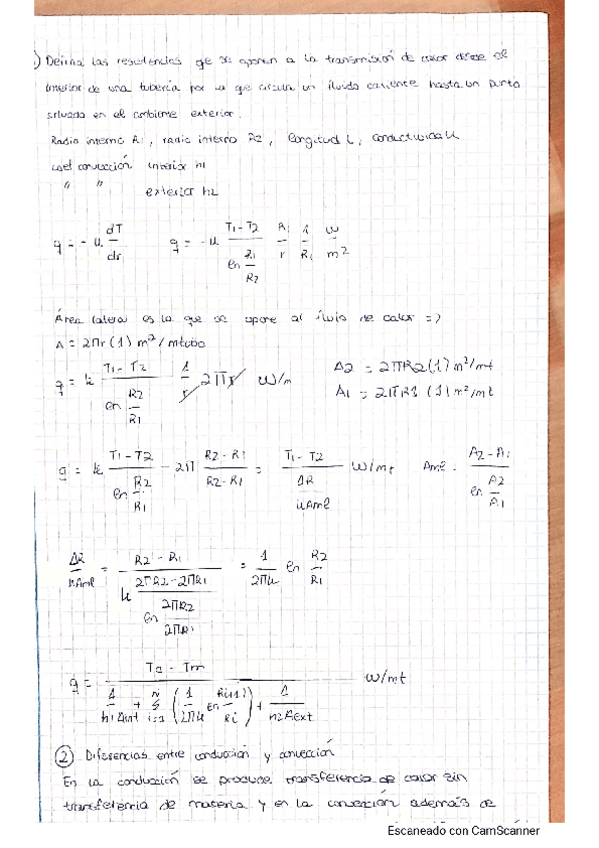 ) Defina las resistencias que se oponen a la transmisión de calor desde el
interior de una tubería por la que circula un fluido caliente hasta un punto
situado en el ambiente exterior.
Radio interno R1, radio interno R2, Longitud L, conductividad K
coef convección interior h1
" " exterior h2
q = - k dT/dr q = - k (T1-T2)/(ln R1/R2) R1/r 1/R1 W/m2
Área lateral es la que se opone al flujo de calor =>
A = 2πr (1) m²/mtubo
q = k (T1-T2)/(ln R2/R1) 1/r 2πr W/m A2 = 2πR2(1) m²/mt
A1 = 2πR1 (1) m²/mt
q = k (T1-T2)/(ln R2/R1) - 2π (R2-R1)/(R2-R1) = (T1-T2)/(ΔR/kAml) W/mt Aml = (A2-A1)/(ln A2/A1)
ΔR/kAml = (R2-R1)/(k (2πR2-2πR1)/(ln 2πR2/2πR1)) = 1/2πk ln R2/R1
W/mt
② Diferencias entre conducción y convección
En la conducción se produce transferencia de calor sin
transferencia de materia y en la convección además de
Escaneado con CamScanner